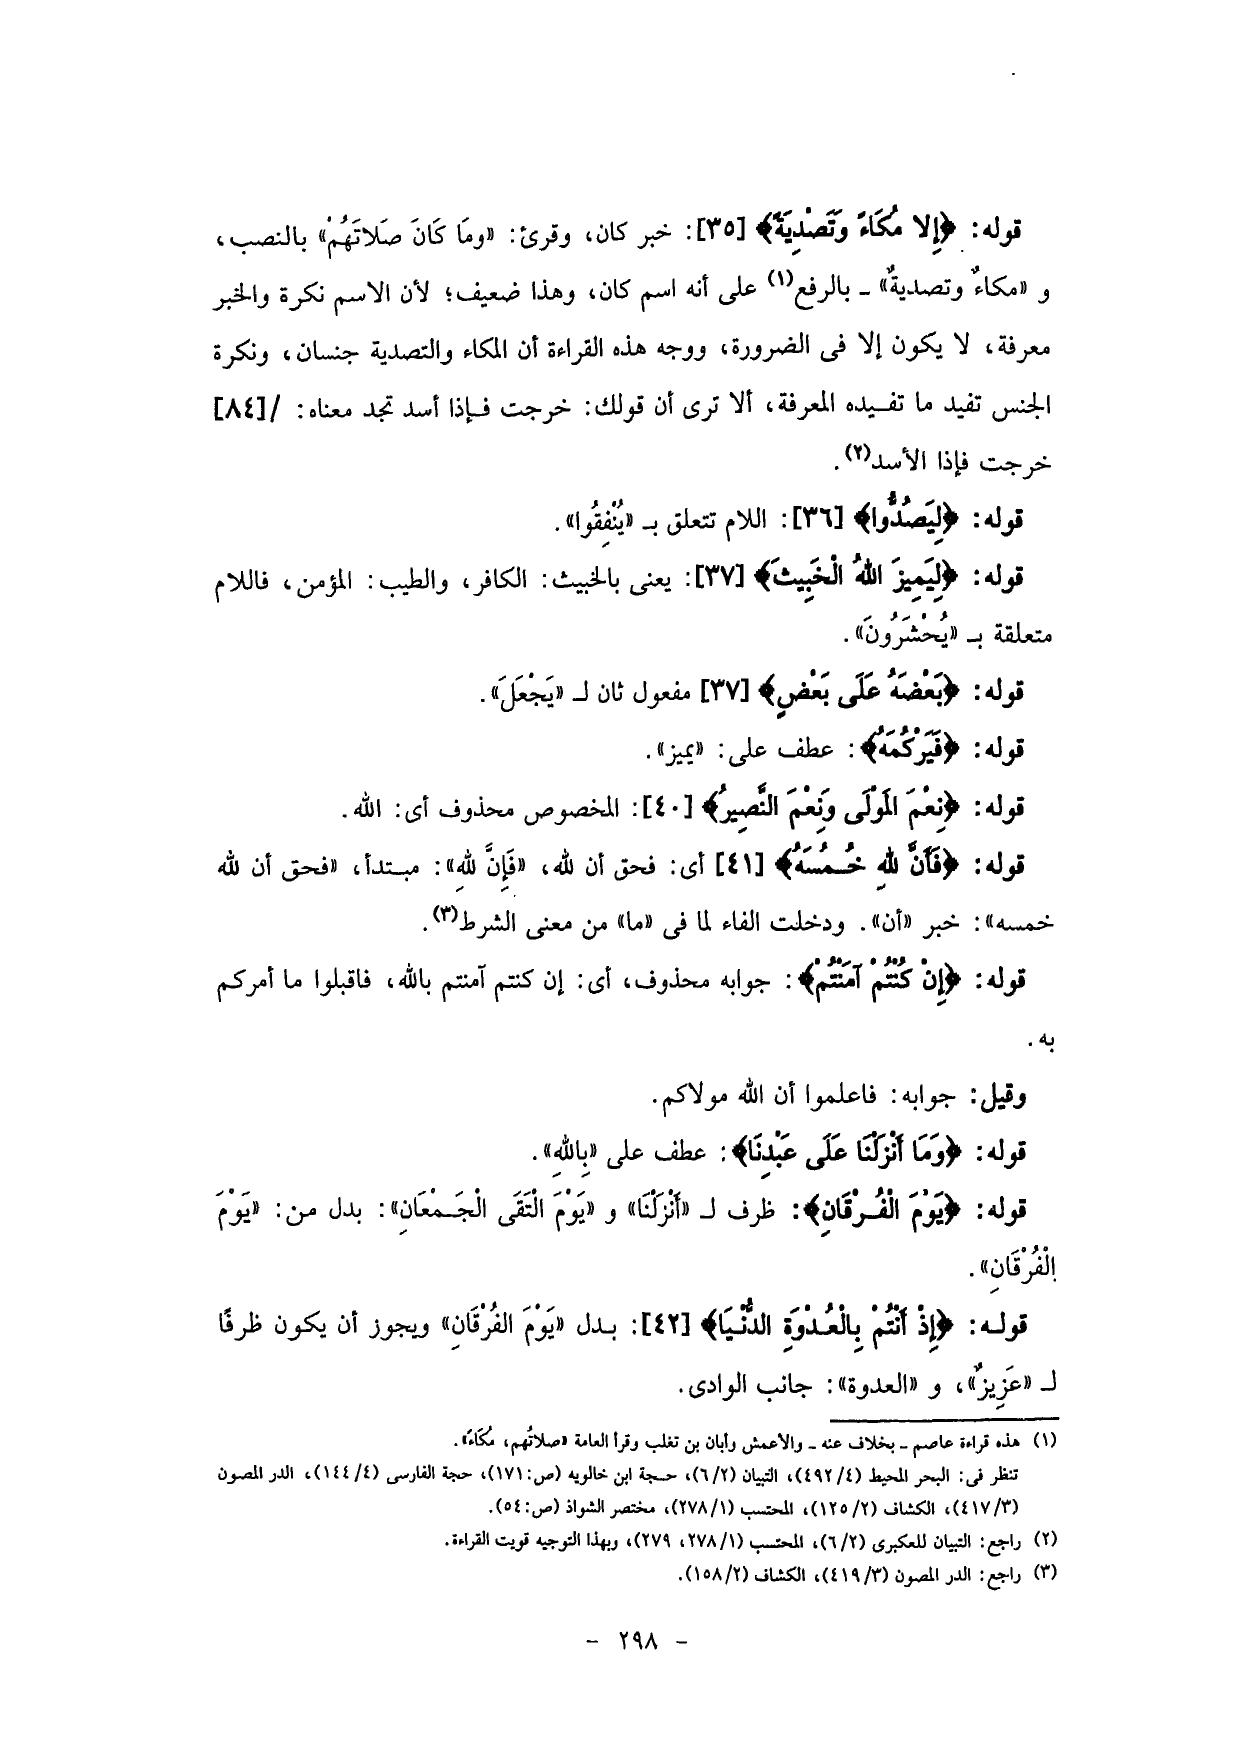 قوله: ﴿إِلا مُكَاءً وَتَصْدِيَةً﴾ [٣٥]: خبر كان، وقرئ: «ومَا كَانَ صَلاتَهُمْ» بالنصب،
و «مكاءٌ وتصديةٌ» ـ بالرفع(١) على أنه اسم كان، وهذا ضعيف؛ لأن الاسم نكرة والخبر
معرفة، لا يكون إلا فى الضرورة، ووجه هذه القراءة أن المكاء والتصدية جنسان، ونكرة
الجنس تفيد ما تفـيده المعرفة، ألا ترى أن قولك: خرجت فـإذا أسد تجد معناه: /[٨٤]
خرجت فإذا الأسد(٢).
قوله: ﴿لِيَصُدُّوا﴾ [٣٦]: اللام تتعلق بـ «يُنْفِقُوا».
قوله: ﴿لِيَمِيزَ اللهُ الْخَبِيثَ﴾ [٣٧]: يعنى بالخبيث: الكافر، والطيب: المؤمن، فاللام
متعلقة بـ «يُحْشَرُونَ».
قوله: ﴿بَعْضَهُ عَلَى بَعْضٍ﴾ [٣٧] مفعول ثان لـ «يَجْعَلَ».
قوله: ﴿فَيَرْكُمَهُ﴾: عطف على: «يميز».
قوله: ﴿نِعْمَ الْمَوْلَى وَنِعْمَ النَّصِيرُ﴾ [٤٠]: المخصوص محذوف أى: الله.
قوله: ﴿فَأَنَّ لِلَّهِ خُـمُسَهُ﴾ [٤١] أى: فحق أن لله، «فَإِنَّ لِلَّهِ»: مبـتدأ، «فحق أن لله
خمسه»: خبر «أن». ودخلت الفاء لما فى «ما» من معنى الشرط(٣).
قوله: ﴿إِنْ كُنْتُمْ آمَنْتُمْ﴾: جوابه محذوف، أى: إن كنتم آمنتم بالله، فاقبلوا ما أمركم
به.
وقيل: جوابه: فاعلموا أن الله مولاكم.
قوله: ﴿وَمَا أَنْزَلْنَا عَلَى عَبْدِنَا﴾: عطف على «بِاللهِ».
قوله: ﴿يَوْمَ الْفُـرْقَانِ﴾: ظرف لـ «أَنْزَلْنَا» و «يَوْمَ الْتَقَى الْجَـمْعَانِ»: بدل من: «يَوْمَ
الْفُرْقَانِ».
قولـه: ﴿إِذْ أَنْتُمْ بِالْعُـدْوَةِ الدُّنْيَا﴾ [٤٢]: بـدل «يَوْمَ الفُرْقَانِ» ويجوز أن يكون ظرفًا
لـ «عَزِيزٌ»، و «العدوة»: جانب الوادى.
(١) هذه قراءة عاصم ـ بخلاف عنه ـ والأعمش وأبان بن تغلب وقرأ العامة «صلاتُهم، مُكَاءً».
تنظر فى: البحر المحيط (٤/ ٤٩٢)، التبيان (٢/ ٦)، حـجة ابن خالويه (ص: ١٧١)، حجة الفارسى (٤/ ١٤٤)، الدر المصون
(٣/ ٤١٧)، الكشاف (٢/ ١٢٥)، المحتسب (١/ ٢٧٨)، مختصر الشواذ (ص: ٥٤).
(٢) راجع: التبيان للعكبرى (٢/ ٦)، المحتسب (١/ ٢٧٨، ٢٧٩)، وبهذا التوجيه قويت القراءة.
(٣) راجع: الدر المصون (٣/ ٤١٩)، الكشاف (٢/ ١٥٨).
- ٢٩٨ -